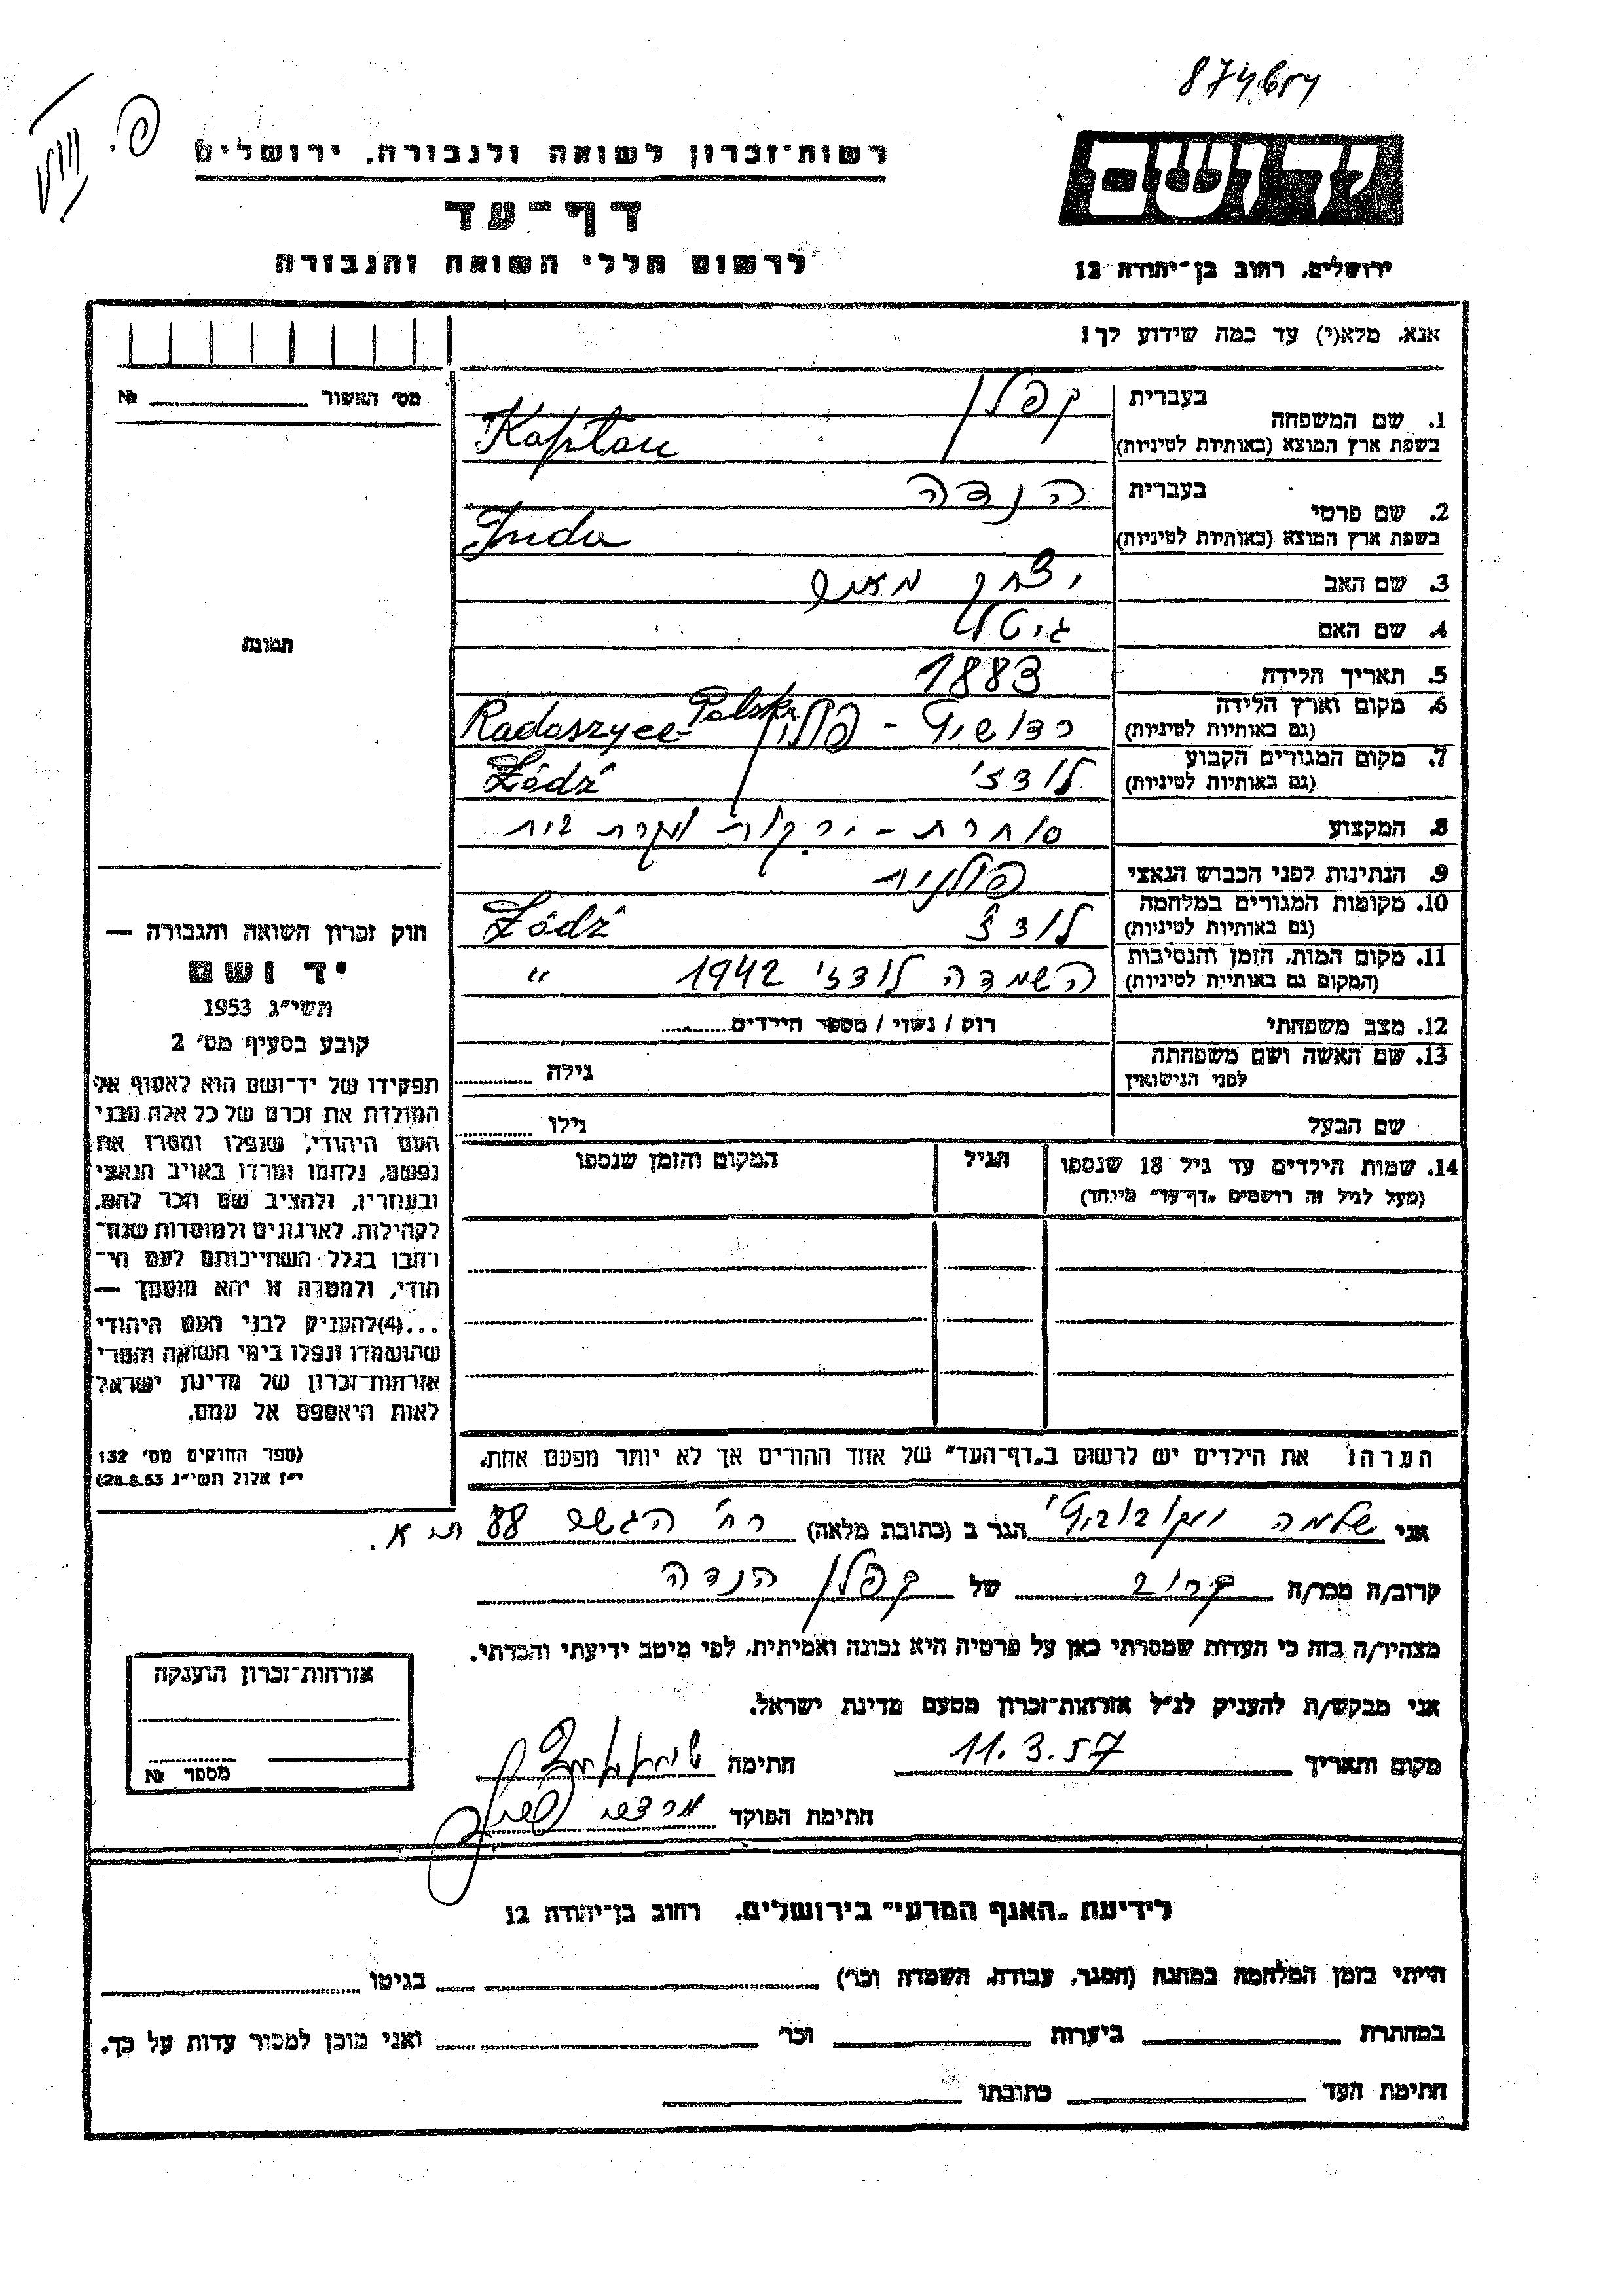 874654
רשות־זכרון לשואה ולגבורה, ירושלים
דף־עד
לרשום חללי השואה והגבורה
יד ושם
ירושלים, רחוב בן־יהודה 12
אנא, מלא(י) עד כמה שידוע לך!
מס׳ האשור № 
1. שם המשפחה בעברית קפלן
בשפת ארץ המוצא (באותיות לטיניות) Kaplan
2. שם פרטי בעברית הנדה
בשפת ארץ המוצא (באותיות לטיניות)
3. שם האב יצחק מאיר
4. שם האם גיטל
5. תאריך הלידה 1883
6. מקום וארץ הלידה (גם באותיות לטיניות) פולין Radoszyce Polska
7. מקום המגורים הקבוע (גם באותיות לטיניות) לודז׳ Łódź
8. המקצוע סוחרת - ירקות
9. הנתינות לפני הכבוש הנאצי פולנית
10. מקומות המגורים במלחמה (גם באותיות לטיניות) לודז׳ Łódź
11. מקום המות, הזמן והנסיבות (המקום גם באותיות לטיניות) השמדה לודז׳ 1942 "
12. מצב משפחתי רוק / נשוי / מספר הילדים
13. שם האשה ושם משפחתה לפני הנישואין גילה
שם הבעל גילו
14. שמות הילדים עד גיל 18 שנספו הגיל המקום והזמן שנספו
(מעל לגיל זה רושמים „דף־עד״ מיוחד)
הערה! את הילדים יש לרשום ב„דף־העד״ של אחד ההורים אך לא יותר מפעם אחת.
תמונה
חוק זכרון השואה והגבורה —
יד ושם
תשי״ג 1953
קובע בסעיף מס׳ 2
תפקידו של יד־ושם הוא לאסוף אל
המולדת את זכרם של כל אלה מבני
העם היהודי, שנפלו ומסרו את
נפשם, נלחמו ומרדו באויב הנאצי
ובעוזריו, ולהציב שם וזכר להם,
לקהילות, לארגונים ולמוסדות שנח־
רבו בגלל השתייכותם לעם הי־
הודי, ולמטרה זו יהא מוסמך —
...(4)להעניק לבני העם היהודי
שהושמדו ונפלו בימי השואה והמרי
אזרחות־זכרון של מדינת ישראל
לאות היאספם אל עמם.
(ספר החוקים מס׳ 132
י״ז אלול תשי״ג 28.8.53)
אני שלמה הגר ב (כתובת מלאה) רח׳ הגשר 88 ת״א.
קרוב/ה מכר/ה קרוב של קפלן הנדה
מצהיר/ה בזה כי העדות שמסרתי כאן על פרטיה היא נכונה ואמיתית, לפי מיטב ידיעתי והכרתי.
אני מבקש/ת להעניק לנ״ל אזרחות־זכרון מטעם מדינת ישראל.
מקום ותאריך 11.3.57 חתימה
חתימת הפוקד
אזרחות־זכרון הוענקה
מספר №
לידיעת „האגף המדעי״ בירושלים, רחוב בן־יהודה 12
הייתי בזמן המלחמה במחנה (הסגר, עבודה, השמדה וכו׳) בגיטו
במחתרת ביערות וכו׳ ואני מוכן למסור עדות על כך.
חתימת העד כתובתו